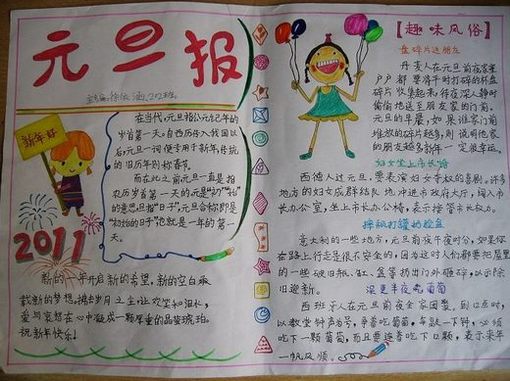 元旦报
新年好
在当代,元旦指公元纪年的
岁首第一天。自西历传入我国以
后,元旦一词便专用于新年,传统
的旧历年则称春节。
而在此之前元旦一直是指
农历岁首第一天的。元是"初""始"
的意思,旦指"日子",元旦合称即是
"初始的日子"也就是一年的第一
天。
2011
新的一年开启新的希望,新的空白承
载新的梦想。拂去岁月之尘,让欢笑和泪水,
爱与哀愁在心中凝成一颗厚重的晶莹琥珀。
祝新年快乐!
【趣味风俗】
盘碎片送朋友
丹麦人在元旦前夜家家
户户都要将平时打碎的杯盘
碎片收集起来,待夜深人静时
偷偷地送至朋友家的门前。
元旦的早晨,如果谁家门前
堆放的碎片越多,则说明他家
的朋友越多新年一定很幸运。
妇女坐上市长椅
西德人过元旦,要表演妇女夺权的喜剧。许多
地方的妇女成群结队地冲进市政府大厅,闯入市
长办公室,坐上市长办公椅,表示接管市长权力。
摔瓶打罐的检盘
意大利的一些地方,元旦前夜午夜时分,如果你
在路上行走是很不安全的,因为这时人们都要把屋里
的一些破旧瓶、缸、盆等扔出门外砸碎,以示除
旧迎新。
深更半夜吃葡萄
西班牙人在元旦前夜全家团聚,到12点时,
以教堂钟声为号,争着吃葡萄,每敲一下钟,必须
吃下一颗葡萄,而且要连着吃下12颗,表示来年
一帆风顺。